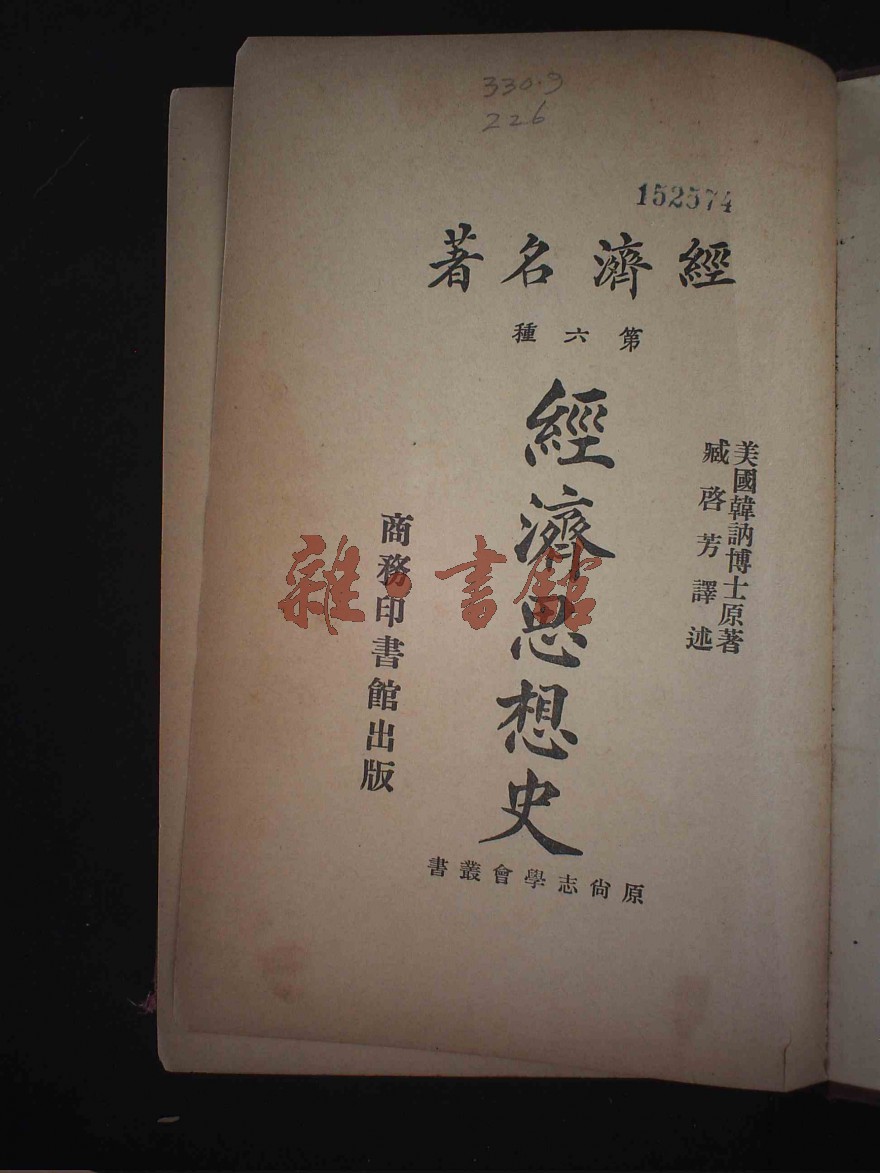 330.9
226
152574
經濟名著
第六種
美國韓訥博士原著
臧啓芳譯述
經濟思想史
商務印書館出版
原尙志學會叢書
雜·書館